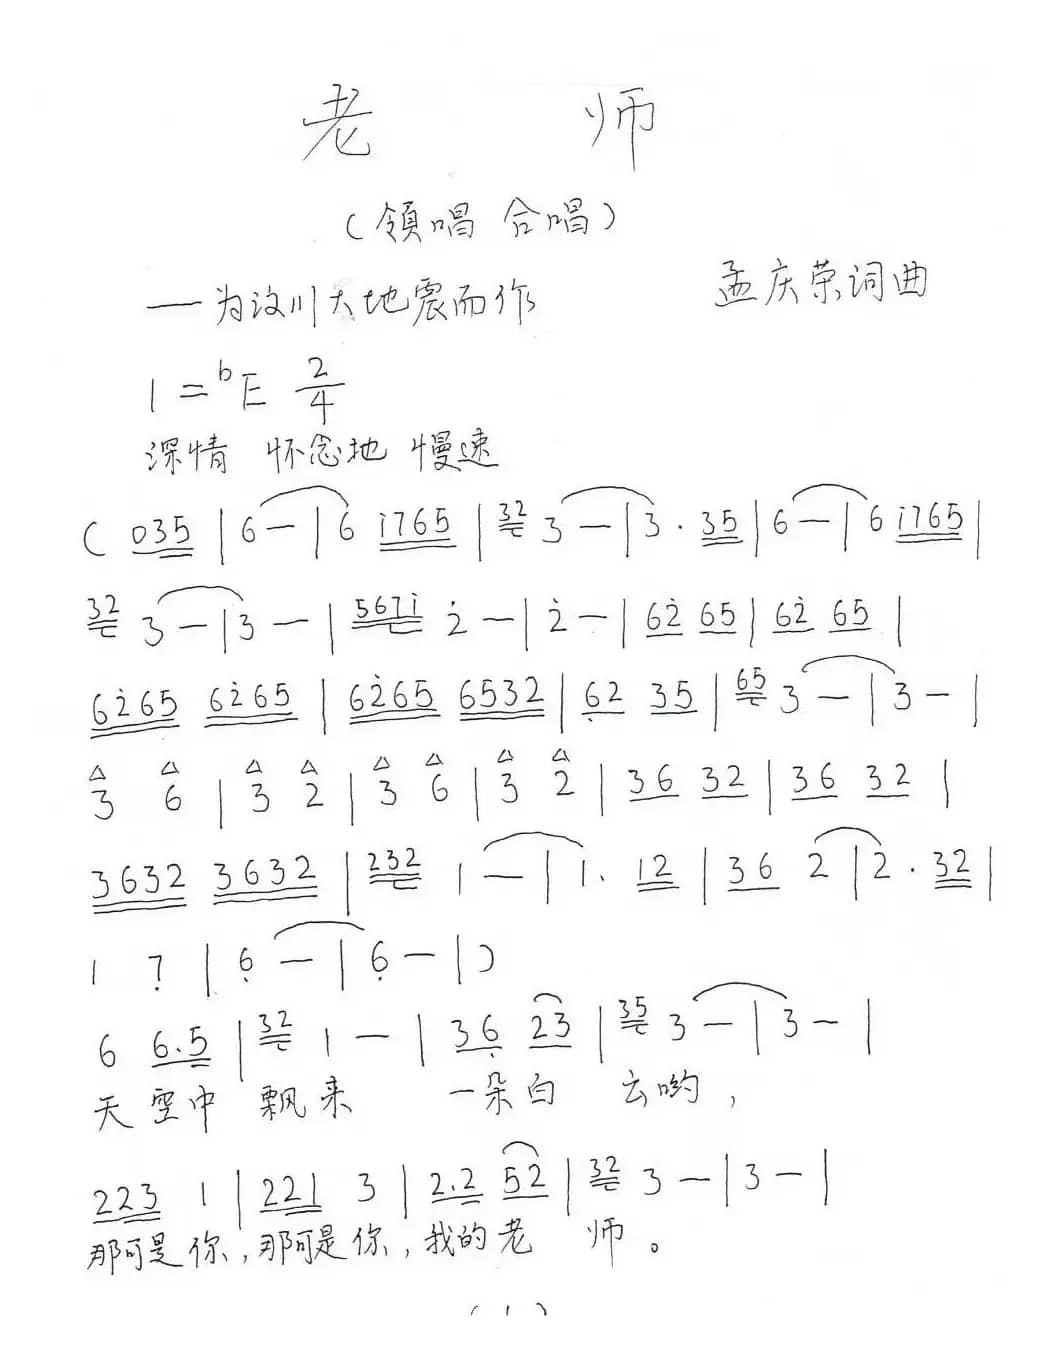 老 师
(领唱 合唱)
—为汶川大地震而作 孟庆荣词曲
1=ᵇE 2/4
深情 怀念地 慢速
( 035 | 6 — | 6 i765 | 32 3 — | 3 · 35 | 6 — | 6 i765 |
32 3 — | 3 — | 567i 2̇ — | 2̇ — | 62̇ 65 | 62̇ 65 |
62̇65 62̇65 | 62̇65 6532 | 6̣2 35 | 65 3 — | 3 — |
3 6 | 3 2 | 3 6 | 3 2 | 36 32 | 36 32 |
3632 3632 | 232 1 — | 1. 12 | 36 2 | 2 · 32 |
1 7̣ | 6̣ — | 6̣ — | )
6 6.5 | 32 1 — | 36̣ 23 | 35 3 — | 3 — |
天 空中 飘来 一朵白 云哟，
223 1 | 221 3 | 2.2 52 | 32 3 — | 3 — |
那可是你，那可是你，我的老 师。
(1)